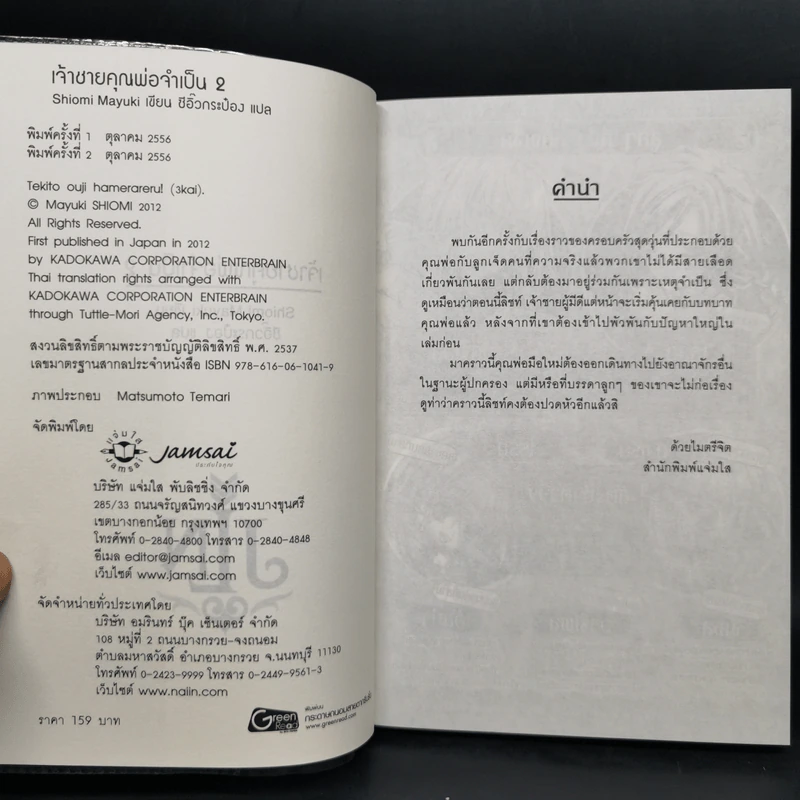 เจ้าชายคุณพ่อจำเป็น 2
Shiomi Mayuki เขียน ซีอิ๊วกระป๋อง แปล
พิมพ์ครั้งที่ 1 ตุลาคม 2556
พิมพ์ครั้งที่ 2 ตุลาคม 2556
Tekito ouji hamerareru! (3kai).
© Mayuki SHIOMI 2012
All Rights Reserved.
First published in Japan in 2012
by KADOKAWA CORPORATION ENTERBRAIN
Thai translation rights arranged with
KADOKAWA CORPORATION ENTERBRAIN
through Tuttle-Mori Agency, Inc., Tokyo.
สงวนลิขสิทธิ์ตามพระราชบัญญัติลิขสิทธิ์ พ.ศ. 2537
เลขมาตรฐานสากลประจำหนังสือ ISBN 978-616-06-1041-9
ภาพประกอบ Matsumoto Temari
จัดพิมพ์โดย
แจ่มใส
JAMSAI
Jamsai
บริษัท แจ่มใส พับลิชชิ่ง จำกัด
285/33 ถนนจรัญสนิทวงศ์ แขวงบางขุนศรี
เขตบางกอกน้อย กรุงเทพฯ 10700
โทรศัพท์ 0-2840-4800 โทรสาร 0-2840-4848
อีเมล editor@jamsai.com
เว็บไซต์ www.jamsai.com
จัดจำหน่ายทั่วประเทศโดย
บริษัท อมรินทร์ บุ๊ค เซ็นเตอร์ จำกัด
108 หมู่ที่ 2 ถนนบางกรวย-จงถนอม
ตำบลมหาสวัสดิ์ อำเภอบางกรวย จ.นนทบุรี 11130
โทรศัพท์ 0-2423-9999 โทรสาร 0-2449-9561-3
เว็บไซต์ www.naiin.com
ราคา 159 บาท
Green Read
พิมพ์บน
กระดาษถนอมสายตากรีนรี้ด
www.greenread.com
คำนำ
พบกันอีกครั้งกับเรื่องราวของครอบครัวสุดวุ่นที่ประกอบด้วย
คุณพ่อกับลูกเจ็ดคนที่ความจริงแล้วพวกเขาไม่ได้มีสายเลือด
เกี่ยวพันกันเลย แต่กลับต้องมาอยู่ร่วมกันเพราะเหตุจำเป็น ซึ่ง
ดูเหมือนว่าตอนนี้ลิซท์ เจ้าชายผู้มีดีแต่หน้าจะเริ่มคุ้นเคยกับบทบาท
คุณพ่อแล้ว หลังจากที่เขาต้องเข้าไปพัวพันกับปัญหาใหญ่ใน
เล่มก่อน
มาคราวนี้คุณพ่อมือใหม่ต้องออกเดินทางไปยังอาณาจักรอื่น
ในฐานะผู้ปกครอง แต่มีหรือที่บรรดาลูกๆ ของเขาจะไม่ก่อเรื่อง
ดูท่าว่าคราวนี้ลิซท์คงต้องปวดหัวอีกแล้วสิ
ด้วยไมตรีจิต
สำนักพิมพ์แจ่มใส